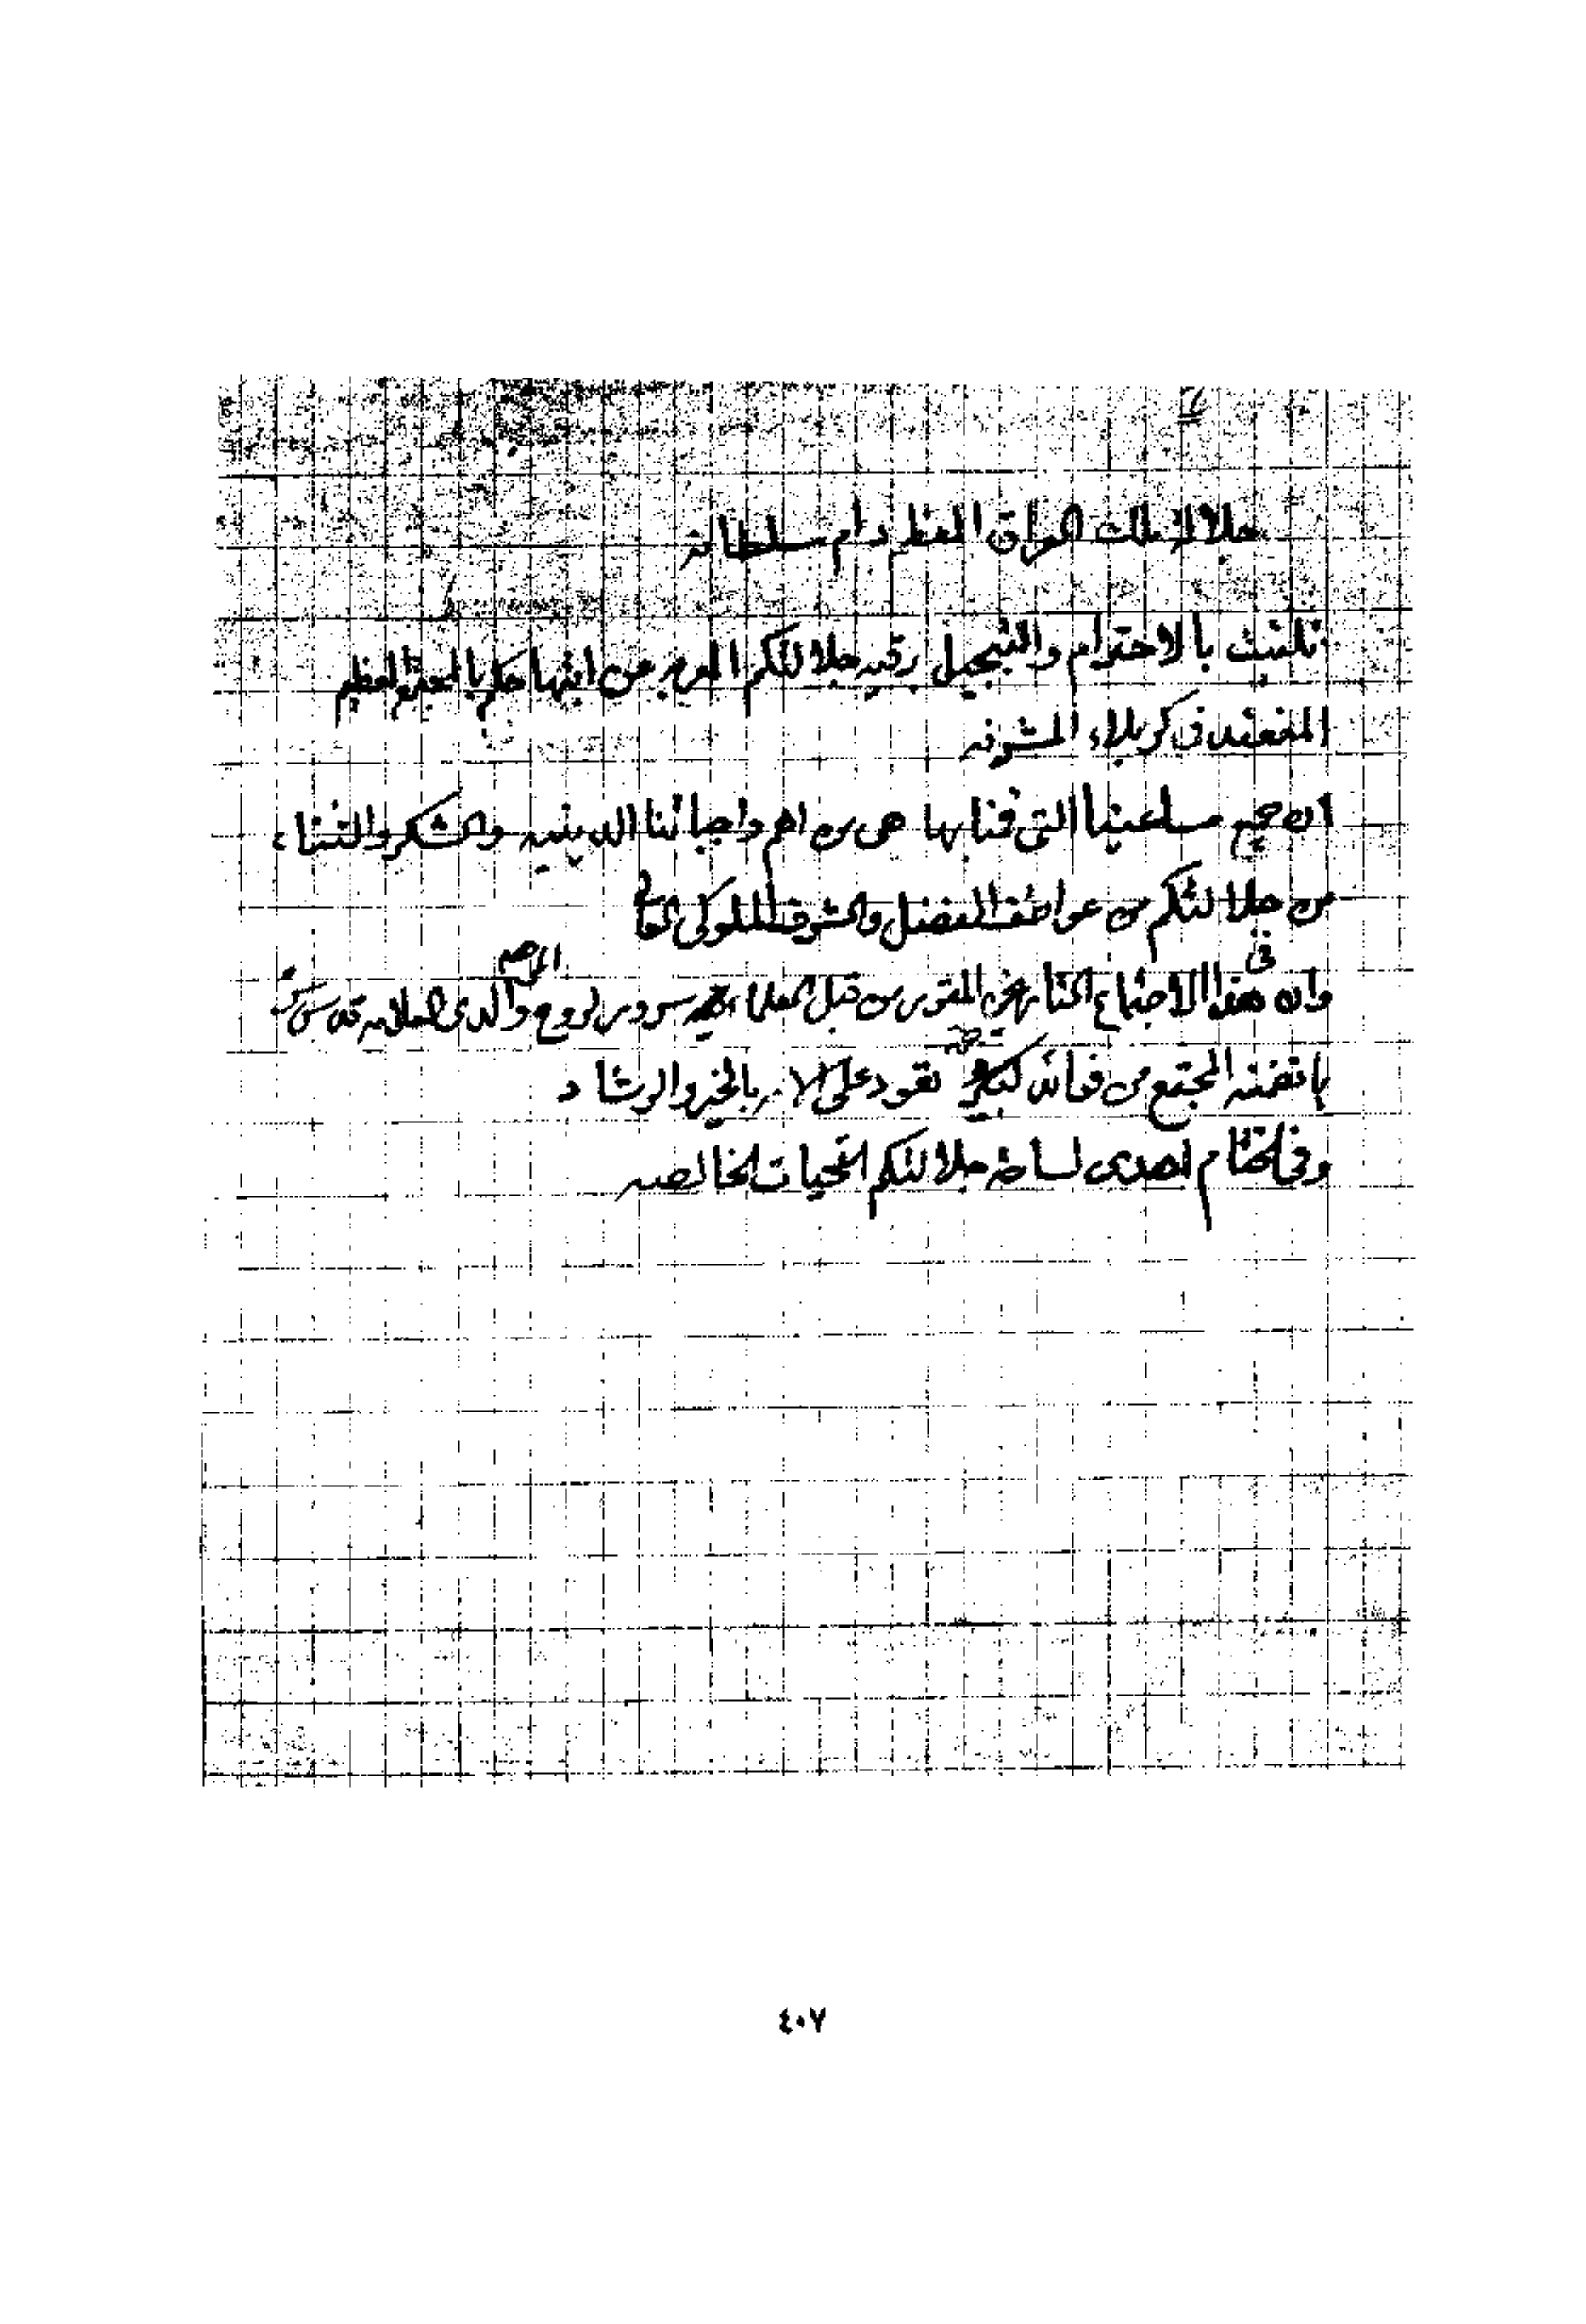 جلالة ملك العراق المعظم دام سلطانه
تلقيت بالاحترام والتبجيل برقيه جلالتكم المعربه عن ابتهاجكم بالمجتمع العظيم
المنعقد في كربلاء المشرفه
ان جميع مساعينا التي قمنا بها هي من اهم واجباتنا الدينيه والشكر والثناء
من جلالتكم من عواطف الفضل والشرف الملوكي
وان في هذا الاجتماع التاريخي المقرر من قبل العلماء سرور لروح والدي المرحوم العلامه قدس سره
بما تضمنه المجتمع من فوائد تعود على الامه بالخير والرشاد
وفي الختام اهدي لساحة جلالتكم التحيات الخالصه
٤٠٧